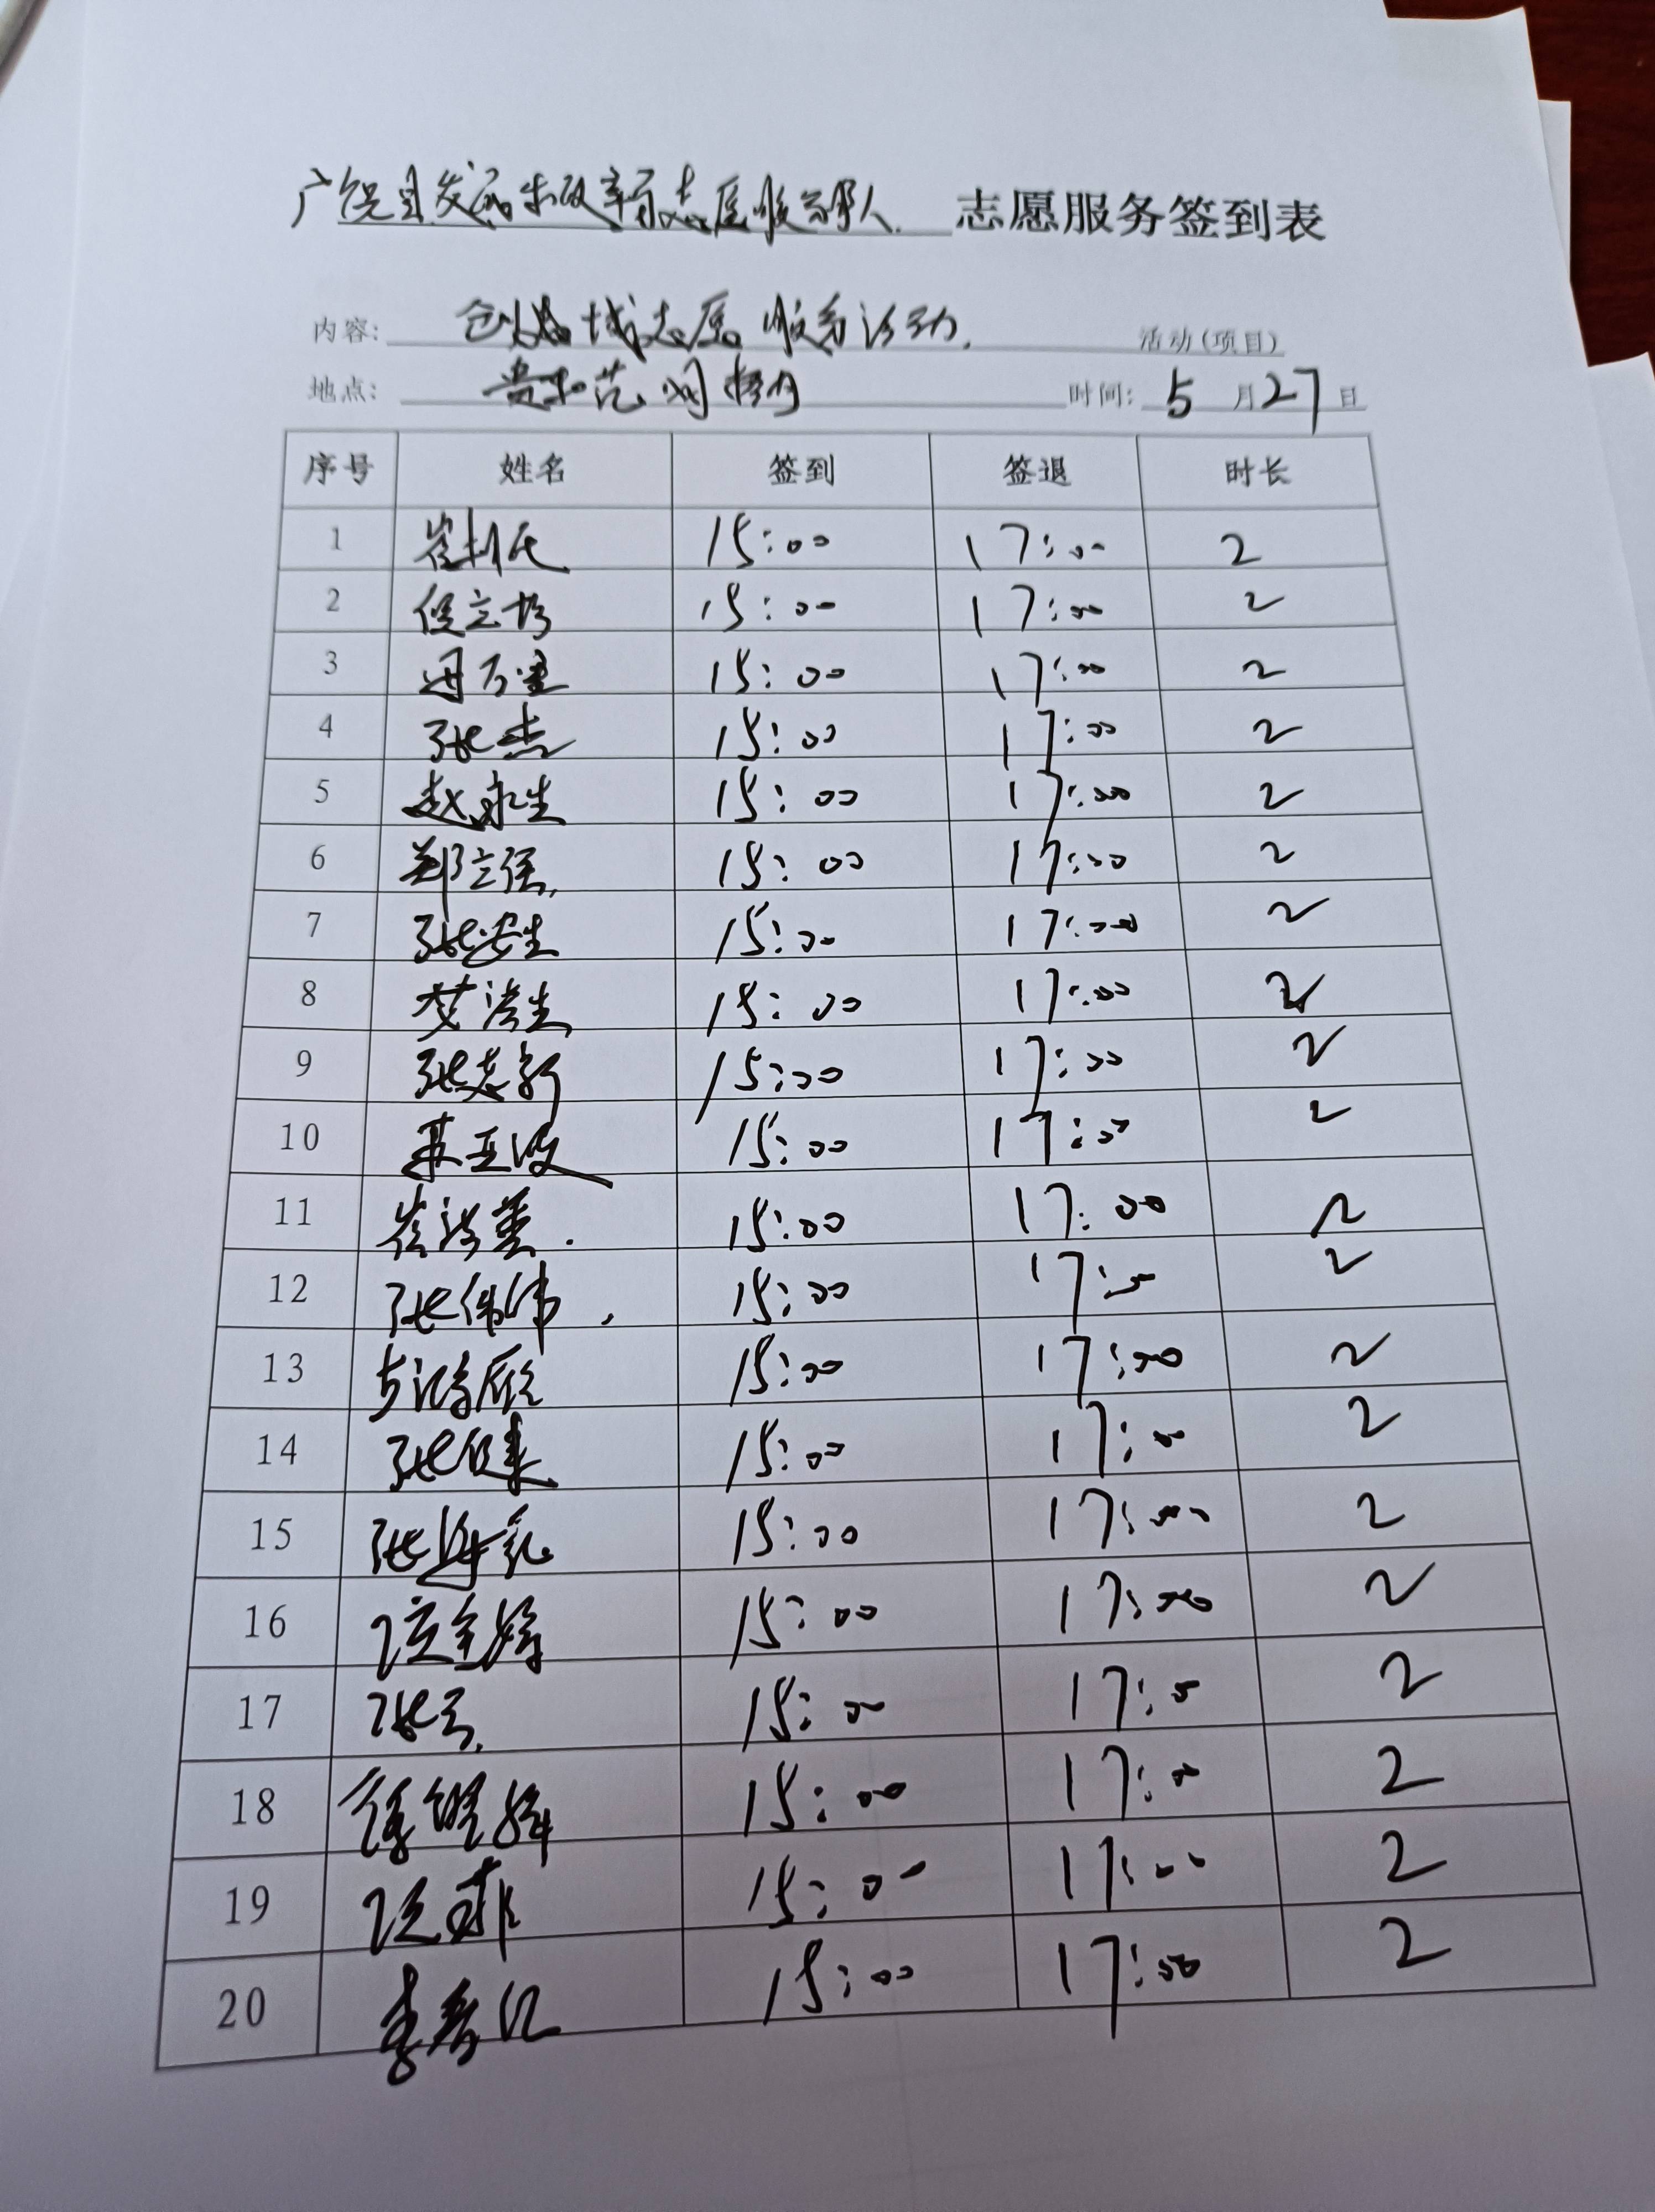 广饶县发展和改革局志愿服务队 志愿服务签到表
内容: 创城志愿服务活动. 活动(项目)
地点: 贵和花园 时间: 5月27日
序号 姓名 签到 签退 时长
1 崔 15:00 17:00 2
2 侯立 15:00 17:00 2
3 15:00 17:00 2
4 张杰 15:00 17:00 2
5 赵永生 15:00 17:00 2
6 郑立强 15:00 17:00 2
7 张安生 15:00 17:00 2
8 艾洪生 15:00 17:00 2
9 张志新 15:00 17:00 2
10 苏亚波 15:00 17:00 2
11 崔洪 15:00 17:00 2
12 张伟伟 15:00 17:00 2
13 15:00 17:00 2
14 张健 15:00 17:00 2
15 张 15:00 17:00 2
16 15:00 17:00 2
17 张 15:00 17:00 2
18 15:00 17:00 2
19 15:00 17:00 2
20 李 15:00 17:00 2